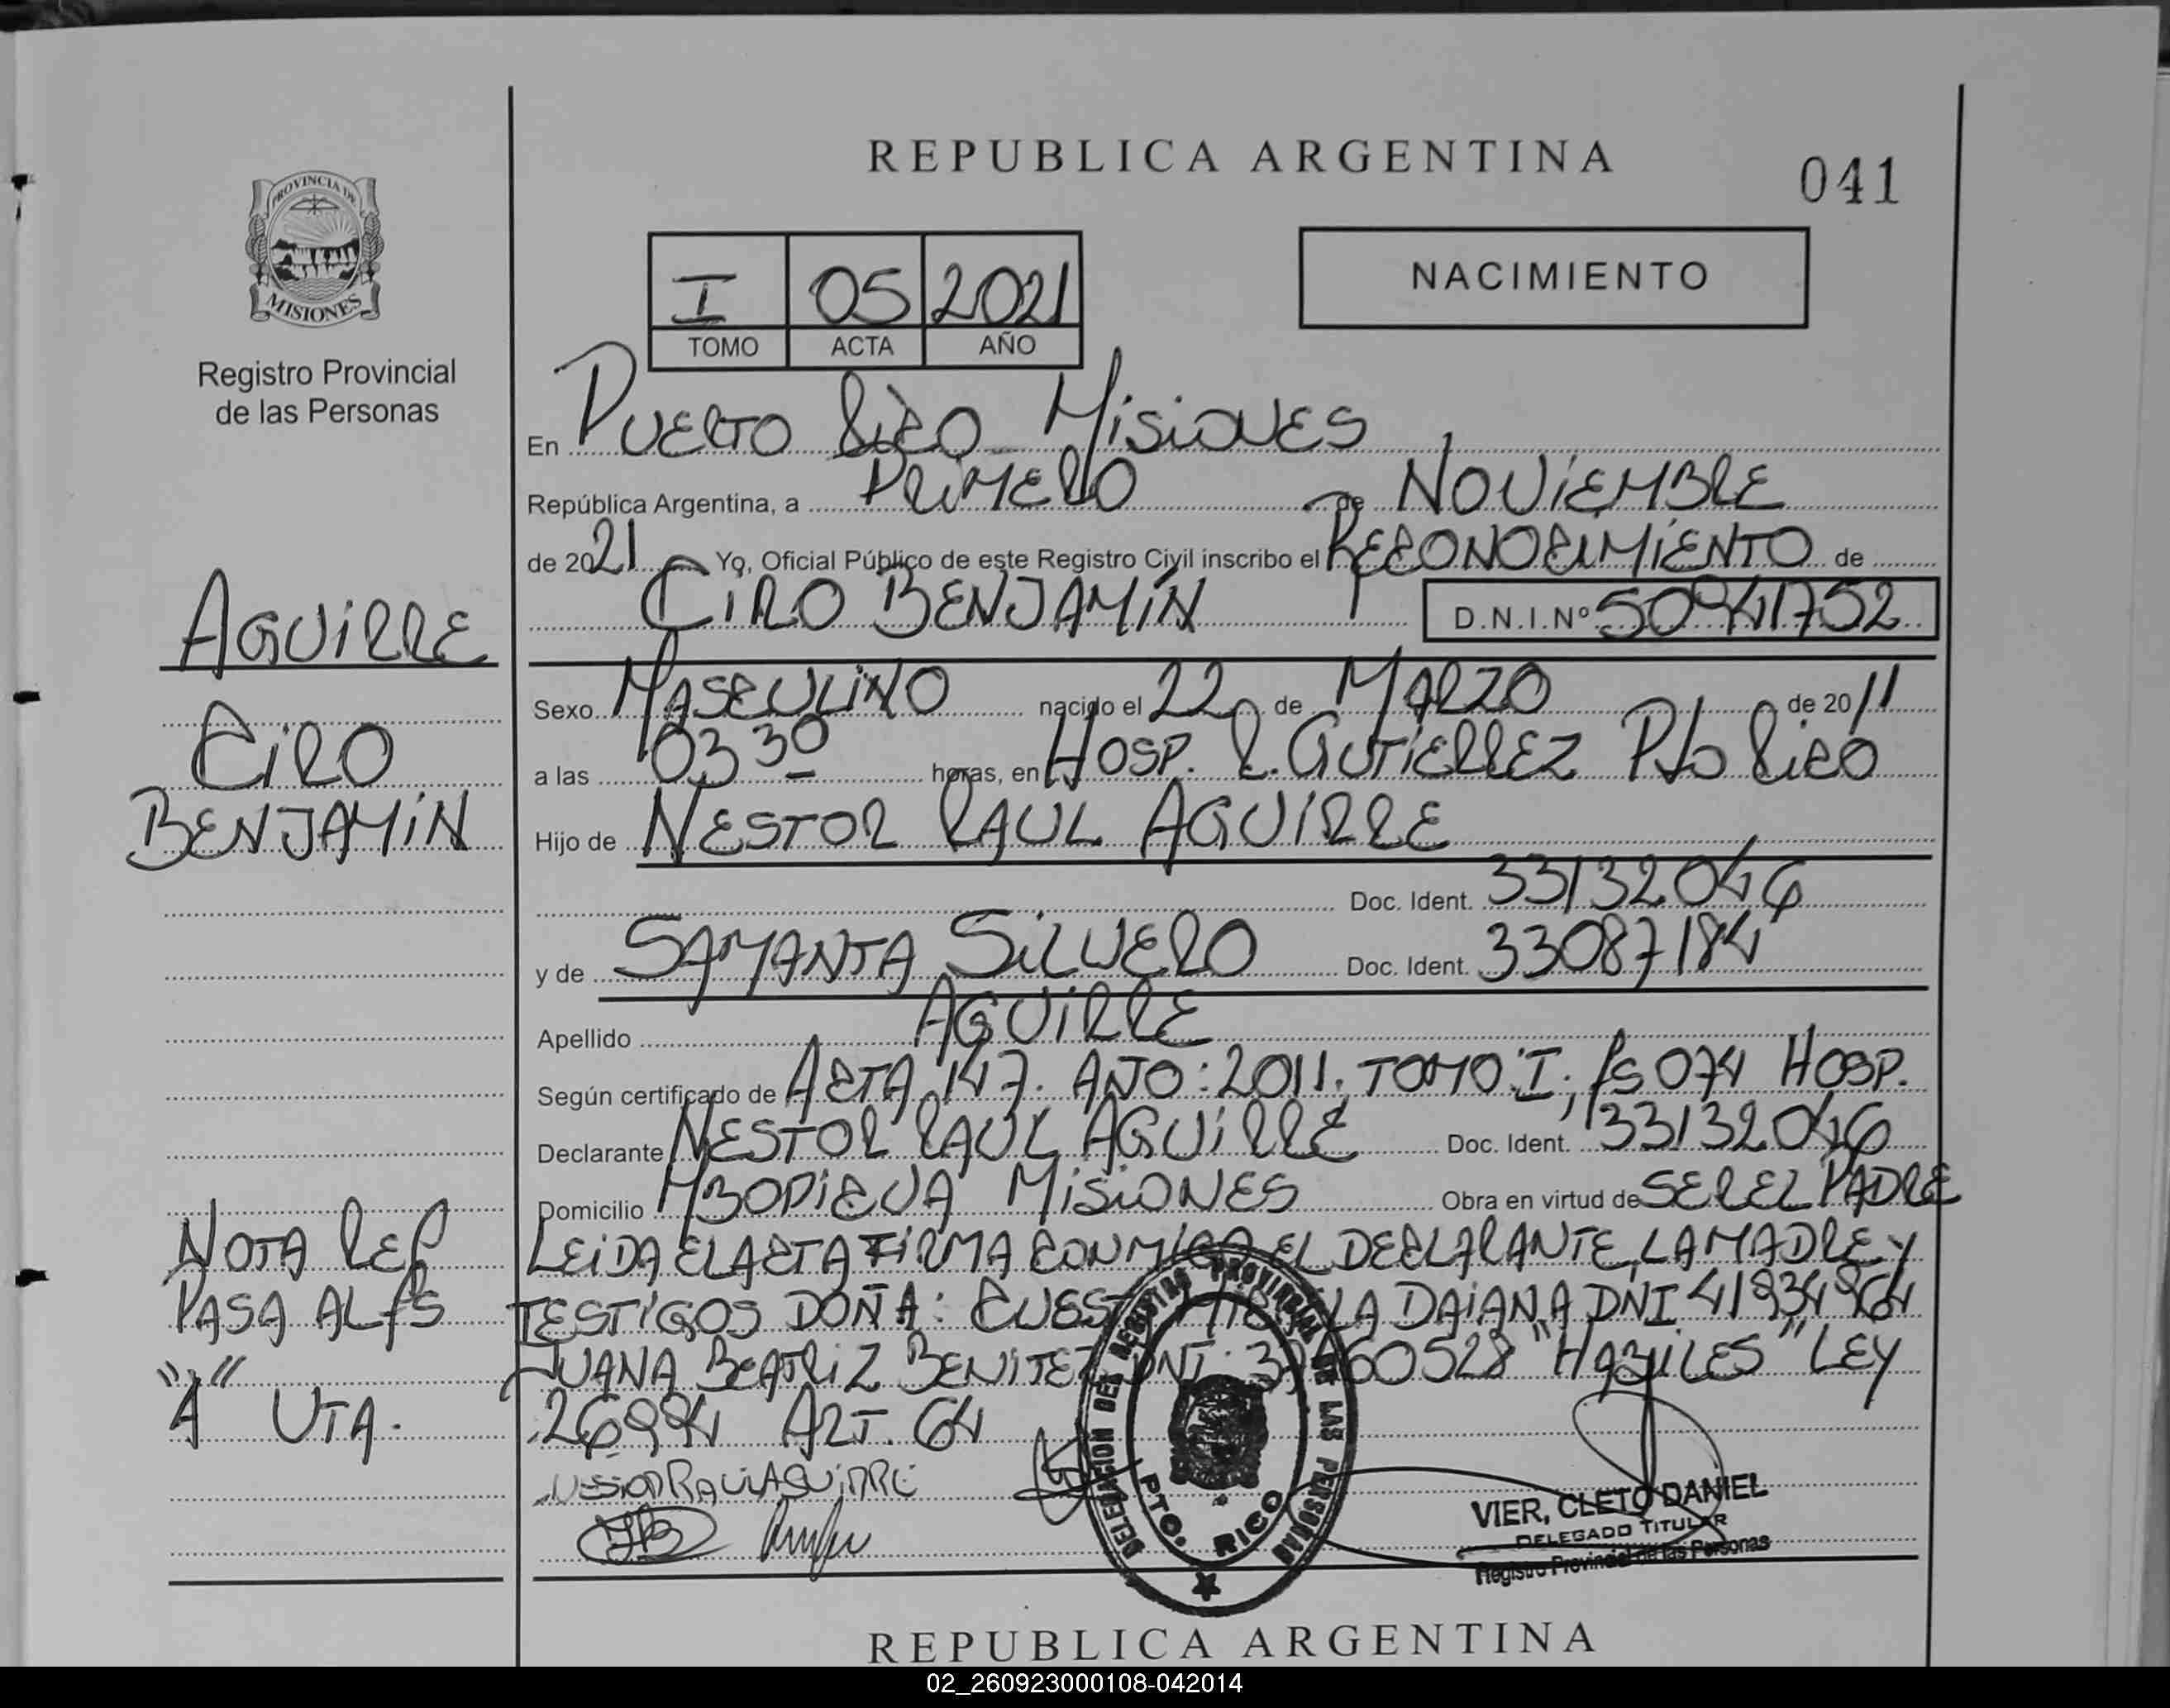 REPUBLICA ARGENTINA
041
PROVINCIA DE
MISIONES
Registro Provincial
de las Personas
I 05 2021
TOMO ACTA AÑO
NACIMIENTO
En PUERTO RICO MISIONES
República Argentina, a PRIMERO de NOVIEMBRE
de 2021 Yo, Oficial Público de este Registro Civil inscribo el RECONOCIMIENTO de
CIRO BENJAMÍN D.N.I.Nº 50941752
AGUIRRE
CIRO
BENJAMÍN
Sexo MASCULINO nacido el 22 de MARZO de 2011
a las 03 30 horas, en HOSP. R. GUTIERREZ Pto RICO
Hijo de NESTOR RAUL AGUIRRE
Doc. Ident. 33132046
y de SAMANTA SILVERO Doc. Ident. 33087184
Apellido AGUIRRE
Según certificado de ACTA 147. AÑO: 2011, TOMO: I; fs 074 HOSP.
Declarante NESTOR RAUL AGUIRRE Doc. Ident. 33132046
Domicilio MBOPICUA MISIONES Obra en virtud de SER EL PADRE
LEIDA EL ACTA FIRMA CONMIGO EL DECLARANTE, LA MADRE Y
TESTIGOS DOÑA: DAIANA DNI
JUANA BEATRIZ BENITEZ DNI: "HABILES" LEY
26994 ART. 64
NOTA REF
PASA AL fS
"A" UTA.
NESTOR RAUL AGUIRRE
DELEGACION DEL REGISTRO PROVINCIAL DE LAS PERSONAS
PTO. RICO
VIER, CLETO DANIEL
DELEGADO TITULAR
Registro Provincial de las Personas
REPUBLICA ARGENTINA
02_260923000108-042014